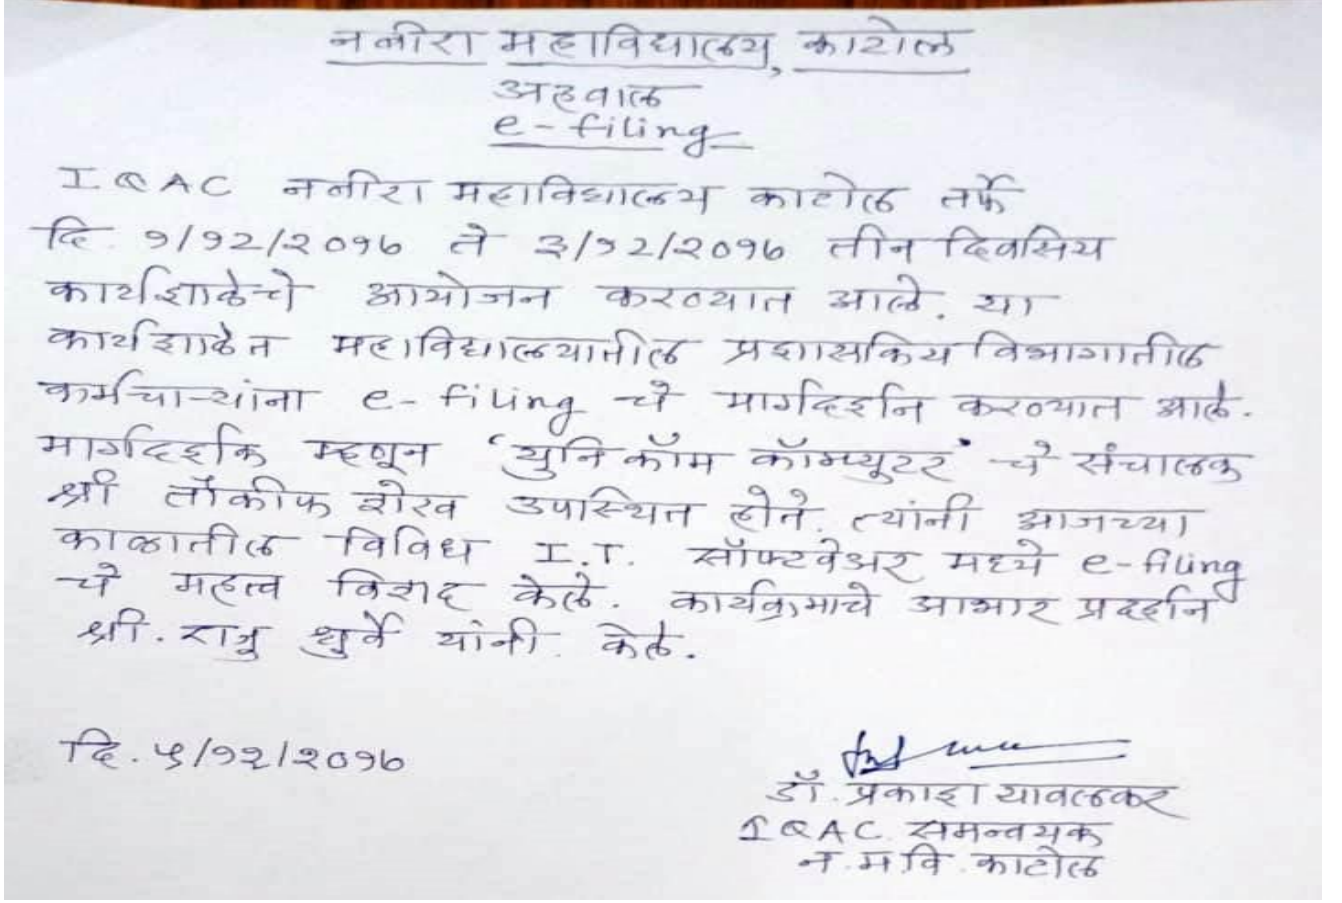 नबीरा महाविद्यालय, काटोल
अहवाल
e-filing
IQAC नबीरा महाविद्यालय काटोल तर्फे
दि. १/१२/२०१७ ते ३/१२/२०१७ तीन दिवसिय
कार्यशाळेचे आयोजन करण्यात आले. या
कार्यशाळेत महाविद्यालयातील प्रशासकिय विभागातील
कर्मचाऱ्यांना e-filing चे मार्गदर्शन करण्यात आले.
मार्गदर्शक म्हणून 'युनिकॉम कॉम्प्युटर' चे संचालक
श्री तौकीफ शेख उपस्थित होते. त्यांनी आजच्या
काळातील विविध I.T. सॉफ्टवेअर मध्ये e-filing
चे महत्व विशद केले. कार्यक्रमाचे आभार प्रदर्शन
श्री. राजु धुर्वे यांनी केले.
दि. ५/१२/२०१७
डॉ. प्रकाश यावलकर
IQAC समन्वयक
न.म.वि. काटोल